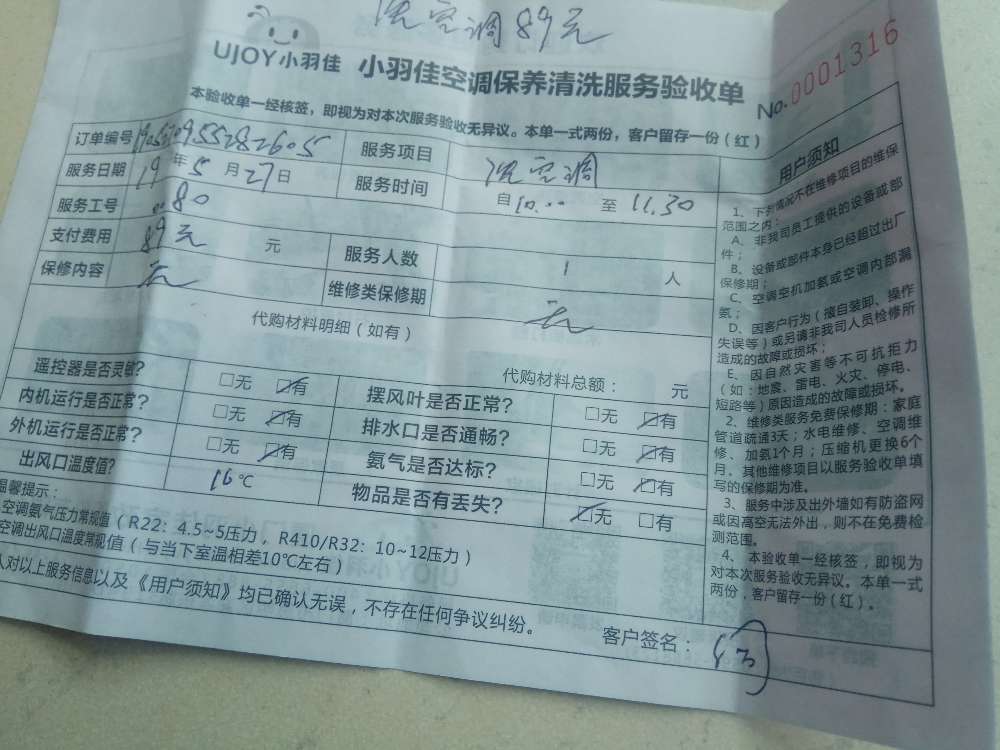 洗空调89元
UJOY小羽佳 小羽佳空调保养清洗服务验收单
No.0001316
本验收单一经核签，即视为对本次服务验收无异议。本单一式两份，客户留存一份（红）
订单编号 服务项目 洗空调
服务日期 19年5月27日 服务时间 自10.00 至 11.30
服务工号 80
支付费用 89元 元 服务人数 1 人
保修内容 无 维修类保修期 无
代购材料明细（如有） 代购材料总额： 元
遥控器是否灵敏? □无 □有 摆风叶是否正常? □无 □有
内机运行是否正常? □无 □有 排水口是否通畅? □无 □有
外机运行是否正常? □无 □有 氨气是否达标? □无 □有
出风口温度值? 16℃ 物品是否有丢失? □无 □有
温馨提示：
空调氨气压力常规值（R22：4.5~5压力，R410/R32：10~12压力）
空调出风口温度常规值（与当下室温相差10℃左右）
人对以上服务信息以及《用户须知》均已确认无误，不存在任何争议纠纷。
客户签名：
用户须知
1、下列情况不在维修项目的维保
范围之内：
A、非我司员工提供的设备或部
件；
B、设备或部件本身已经超过出厂
保修期；
C、空调空机加氨或空调内部漏
氨；
D、因客户行为（擅自装卸、操作
失误等）或另请非我司人员检修所
造成的故障或损坏；
E、因自然灾害等不可抗拒力
（如：地震、雷电、火灾、停电、
短路等）原因造成的故障或损坏。
2、维修类服务免费保修期：家庭
管道疏通3天；水电维修、空调维
修、加氨1个月；压缩机更换6个
月，其他维修项目以服务验收单填
写的保修期为准。
3、服务中涉及出外墙如有防盗网
或因高空无法外出，则不在免费检
测范围。
4、本验收单一经核签，即视为
对本次服务验收无异议。本单一式
两份，客户留存一份（红）。